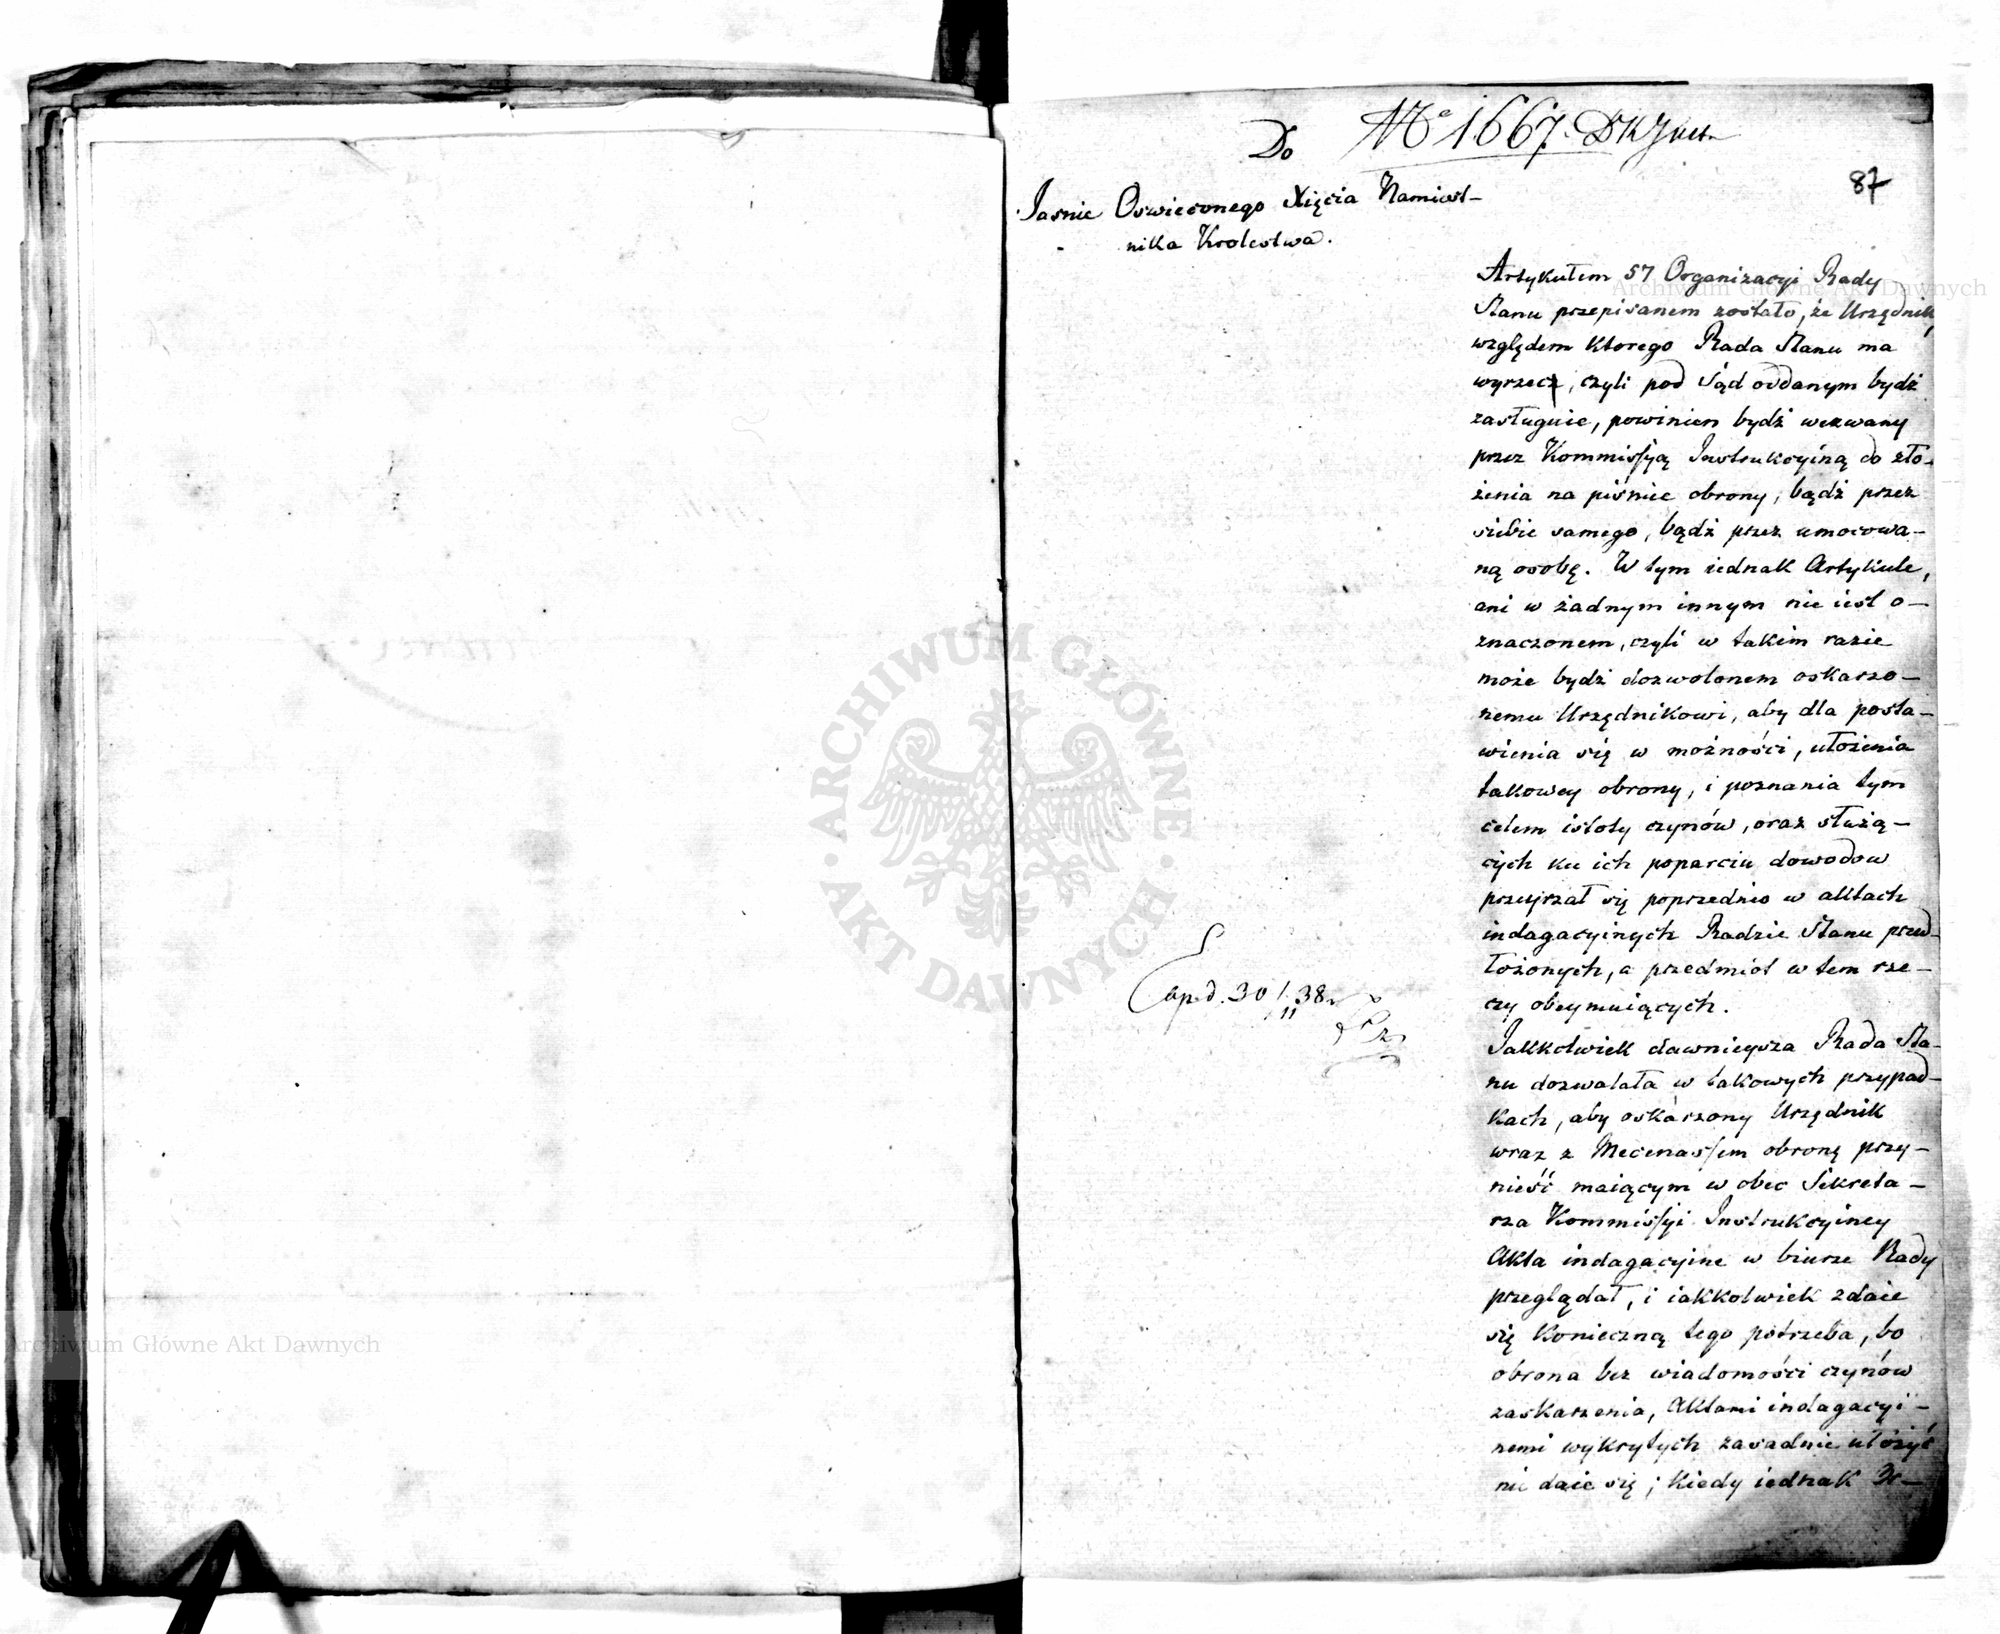 Do
No 1667.
87
Jasnie Oswieconego Xięcia Namiest-
nika Krolestwa.
Artykułem 57 Organizacyi Rady
Stanu przepisanem zostało, że Urzędnik,
względem ktorego Rada Stanu ma
wyrzecz, czyli pod Sąd oddanym bydź
zasługuie, powinien bydź wezwany
przez Kommissyą Instrukcyiną do zło-
żenia na piśmie obrony, bądź przez
siebie samego, bądź przez umocowa-
ną osobę. W tym iednak Artykule,
ani w żadnym innym nie iest o-
znaczonem, czyli w takim razie
może bydź dozwolonem oskarżo-
nemu Urzędnikowi, aby dla posta-
wienia się w możności, ułożenia
takowey obrony, i poznania tym
celem istoty czynów, oraz służą-
cych ku ich poparciu dowodow
przeyrzał się poprzednio w aktach
indagacyinych Radzie Stanu przed-
łożonych, a przedmiot w tem rze-
czy obeymuiących.
Jakkolwiek dawnieysza Rada Sta-
nu dozwalała w takowych przypad-
kach, aby oskarżony Urzędnik
wraz z Mecenassem obronę przy-
nieść maiącym w obec Sekreta-
rza Kommissyi Instrukcyiney
Akta indagacyine w biurze Rady
przeglądał, i iakkolwiek zdaie
się konieczną tego potrzeba, bo
obrona bez wiadomości czynów
zaskarżenia, Aktami indagacyi-
nemi wykrytych zasadnie ułożyć
nie daie się; kiedy iednak Or-
Exp. d. 30/11 38 r.
ARCHIWUM GŁÓWNE
AKT DAWNYCH
Archiwum Główne Akt Dawnych
Archiwum Główne Akt Dawnych